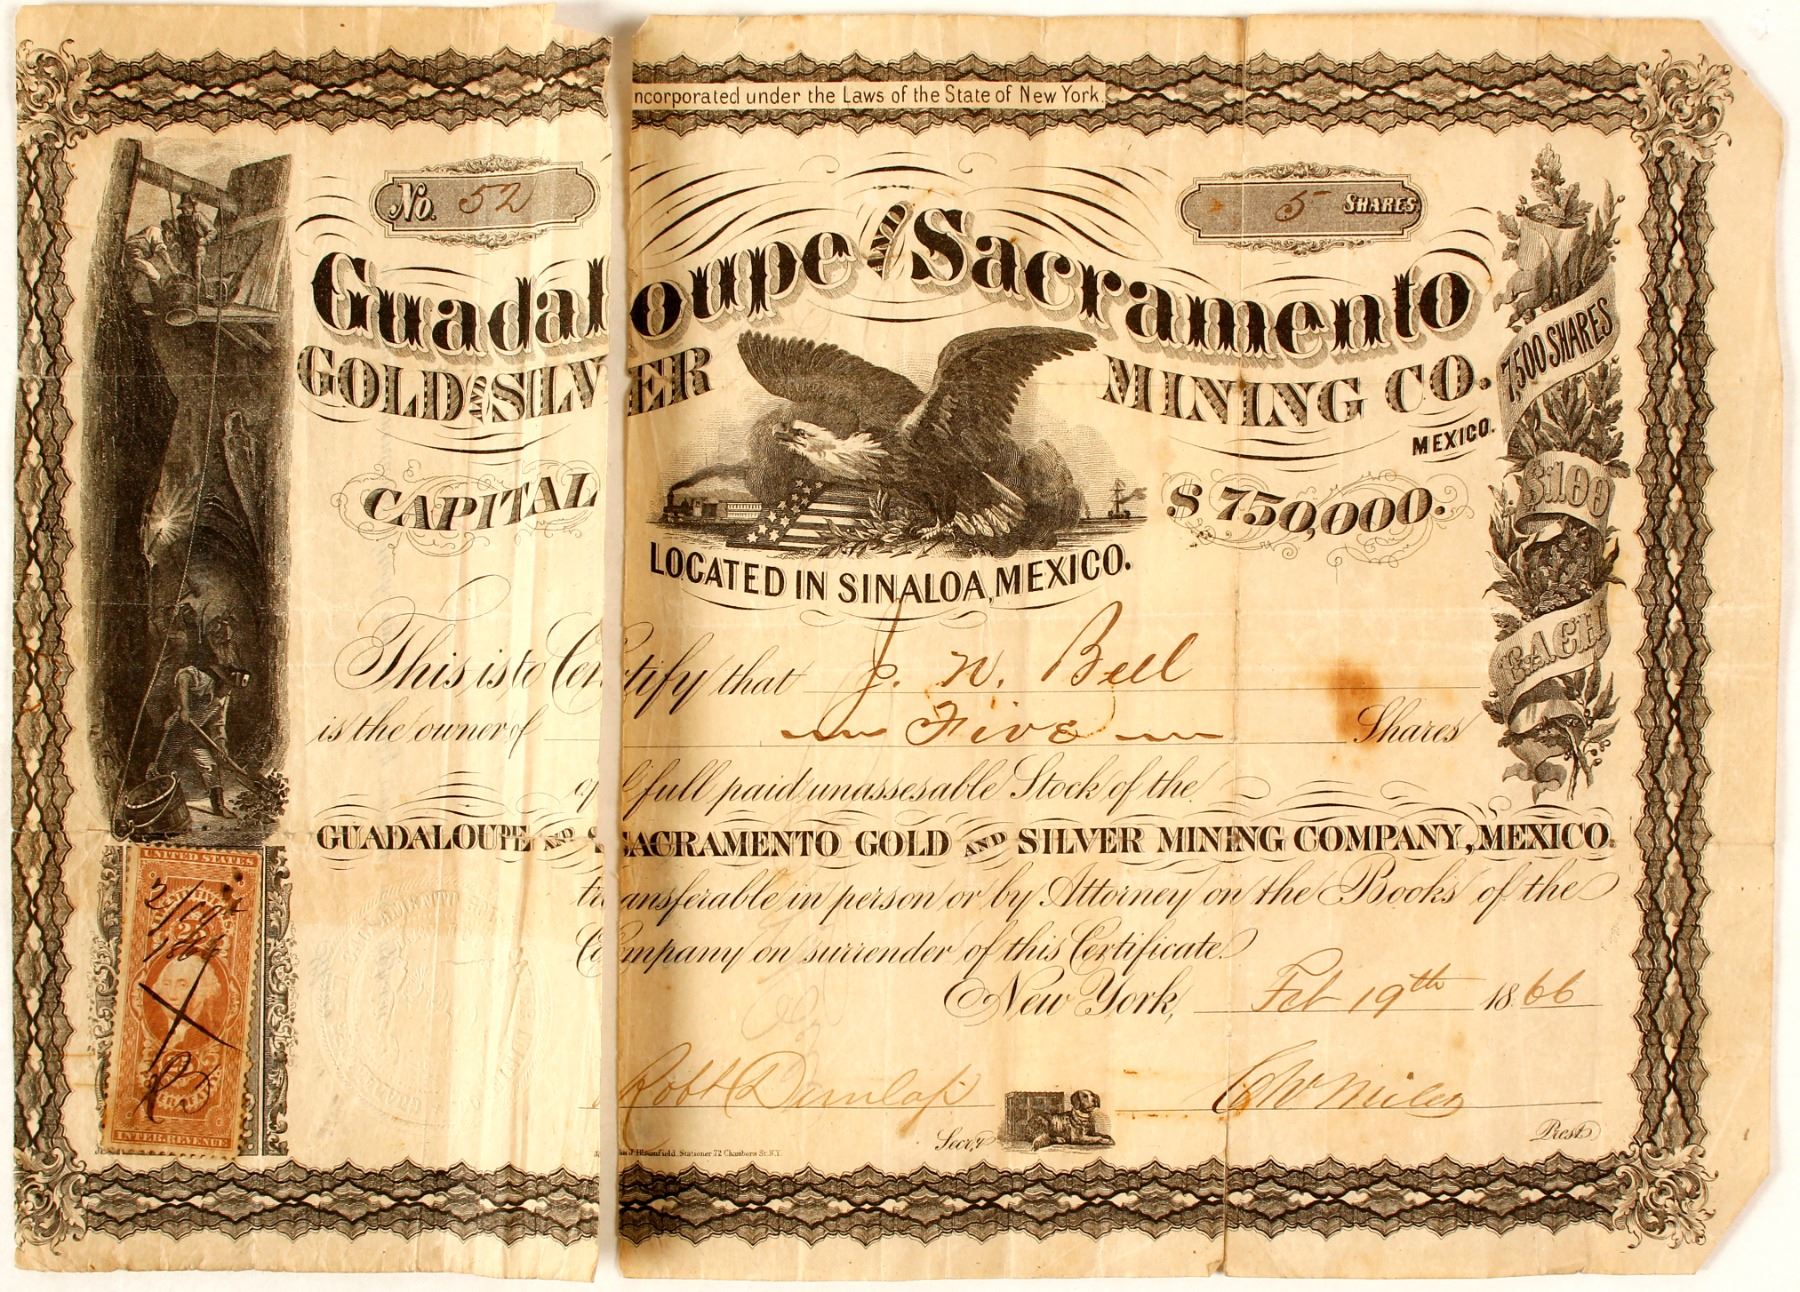 ncorporated under the Laws of the State of New York.
No. 52
5 SHARES
Guadaloupe AND Sacramento
GOLD AND SILVER MINING CO.
MEXICO.
7500 SHARES
$100
EACH
CAPITAL $750,000.
LOCATED IN SINALOA, MEXICO.
This is to Certify that J. W. Bell
is the owner of Five Shares
of full paid unassesable Stock of the
GUADALOUPE AND SACRAMENTO GOLD AND SILVER MINING COMPANY, MEXICO.
transferable in person or by Attorney on the Books of the
Company on surrender of this Certificate
New York, Feb 19th 1866
Robt Dunlap
Secr,y
C W Miles
Prest
Stationer 72 Chambers St. N.Y.
UNITED STATES
2/19
1866
25
INTER. REVENUE